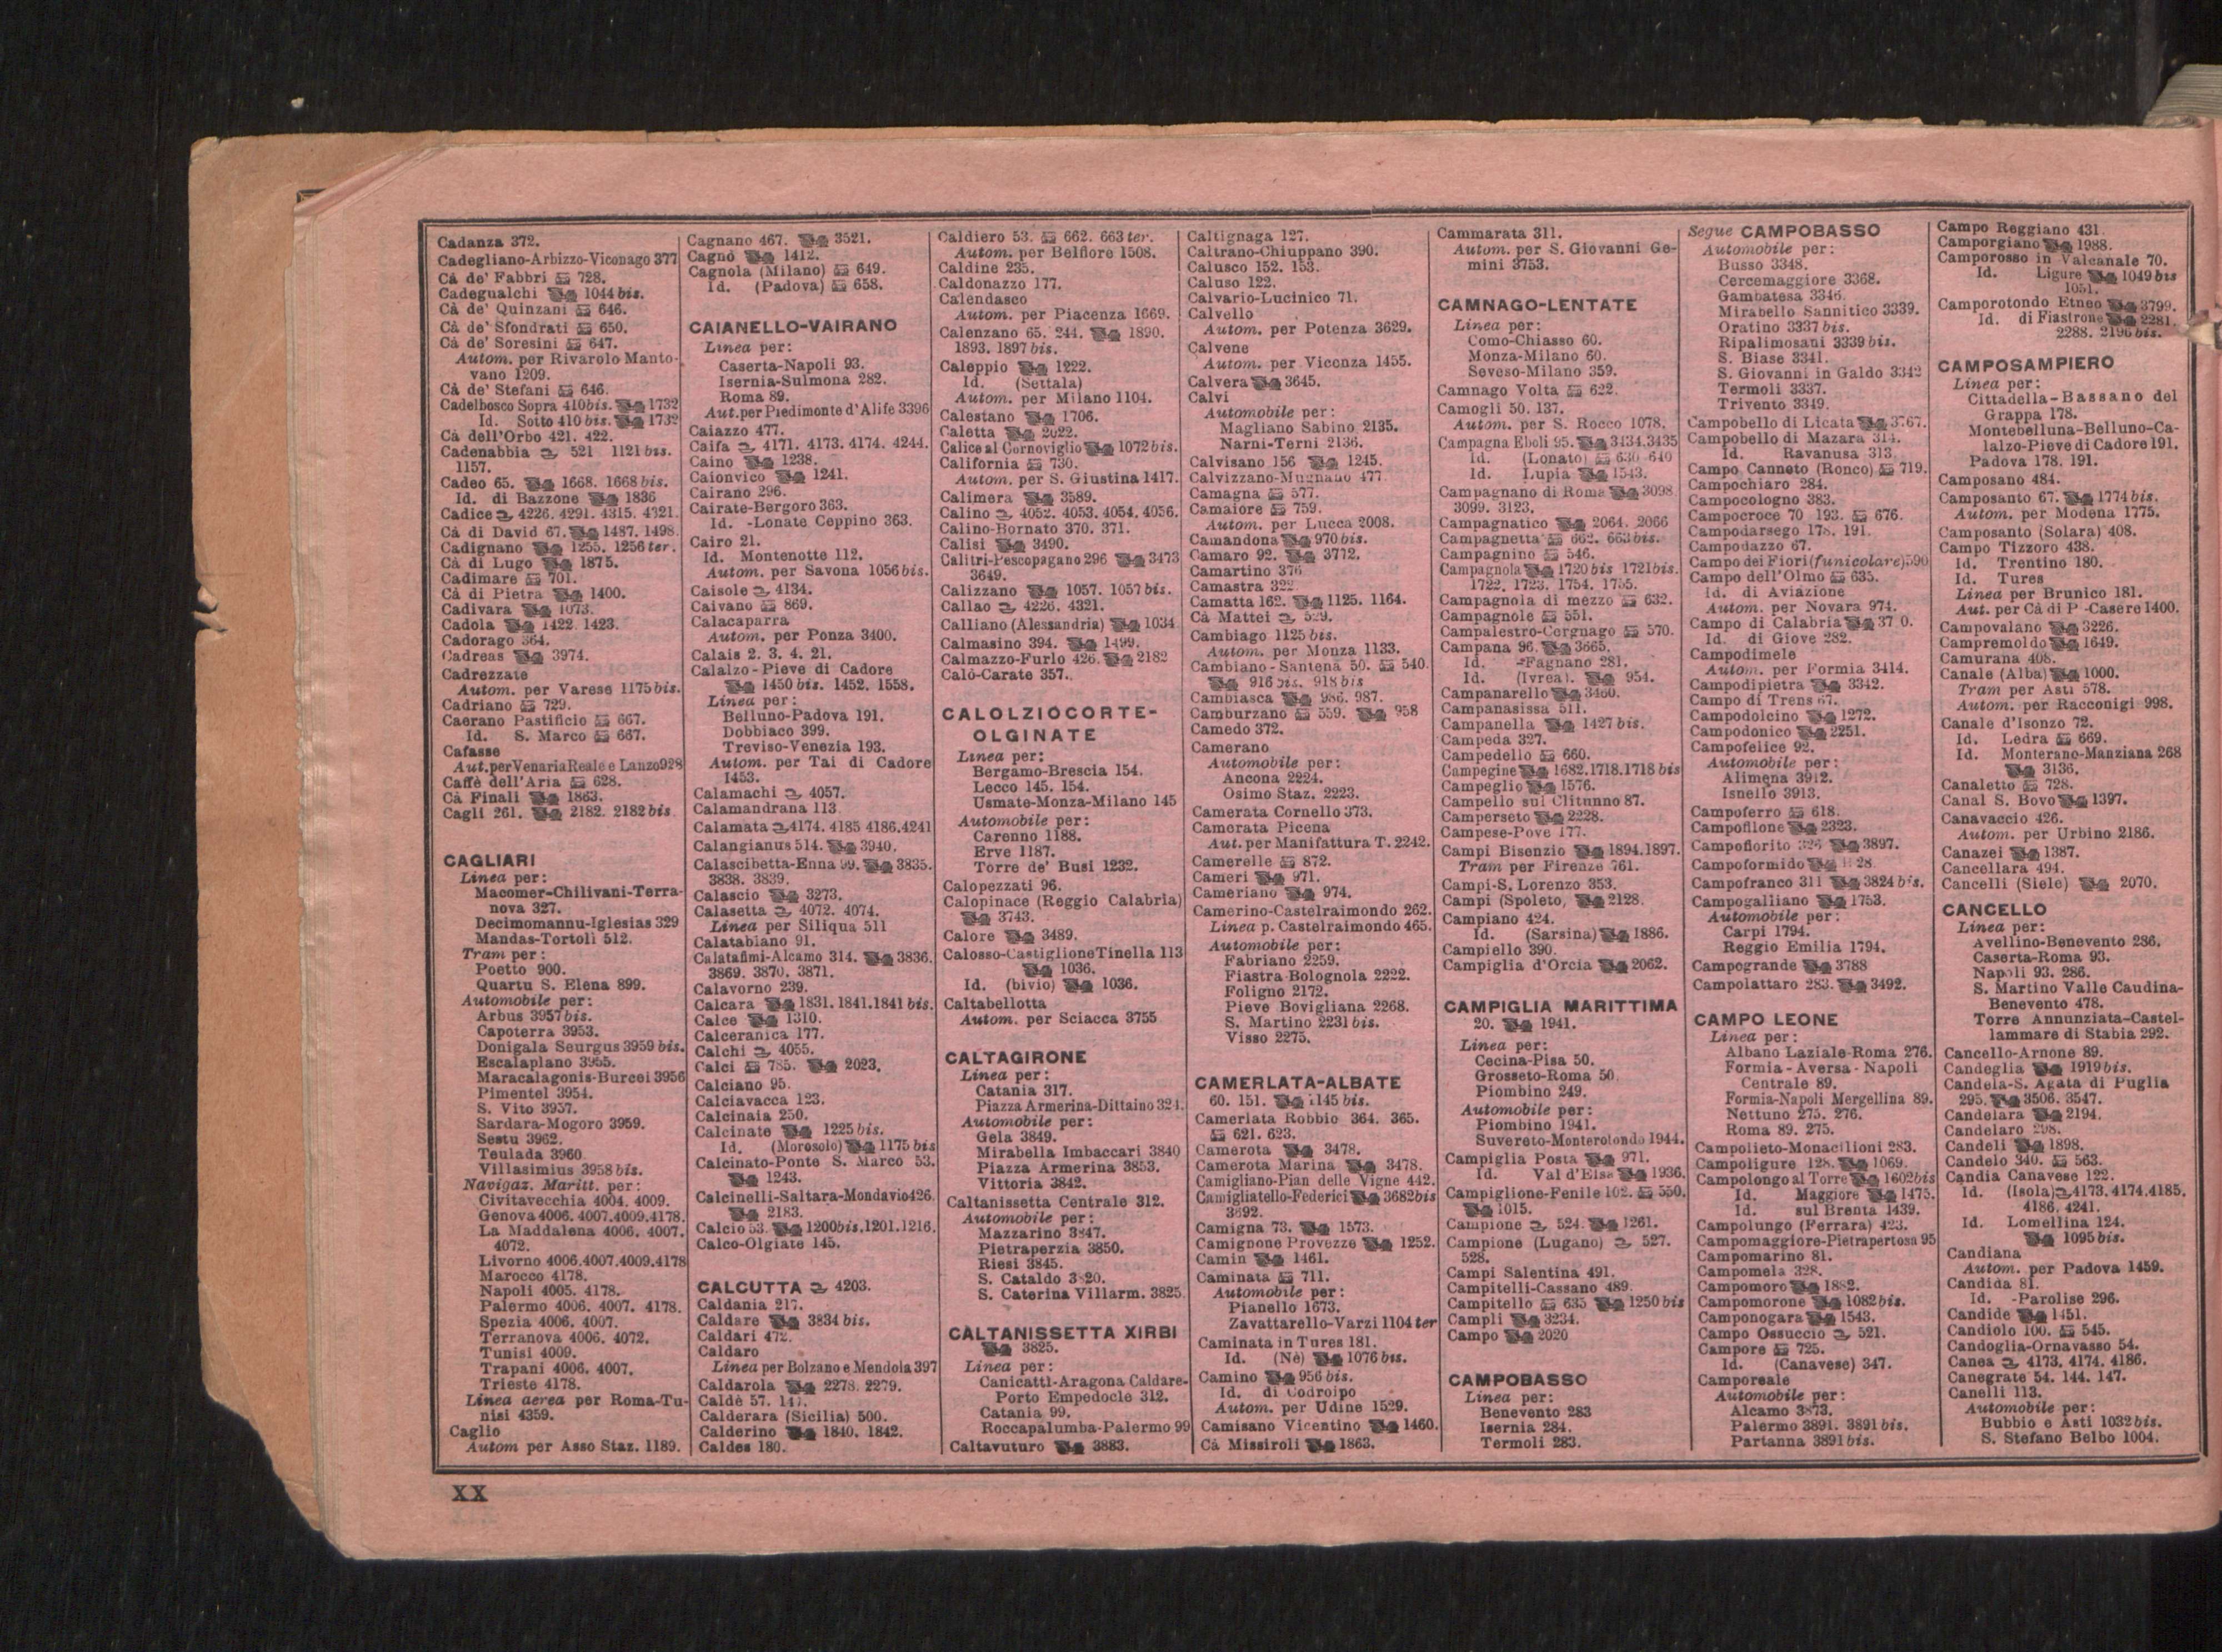 Cadanza 372.
Cadegliano-Arbizzo-Viconago 377
Cà de' Fabbri 728.
Cadegualchi 1044 bis.
Cà de' Quinzani 646.
Cà de' Sfondrati 650.
Cà de' Soresini 647.
Autom. per Rivarolo Manto-
vano 1209.
Cà de' Stefani 646.
Cadelbosco Sopra 410 bis. 1732
Id. Sotto 410 bis. 1732
Cà dell'Orbo 421. 422.
Cadenabbia 521 1121 bis.
1157.
Cadeo 65. 1668. 1668 bis.
Id. di Bazzone 1836
Cadice 4226. 4291. 4315. 4321.
Cà di David 67. 1487. 1498.
Cadignano 1255. 1256 ter.
Cà di Lugo 1875.
Cadimare 701.
Cà di Pietra 1400.
Cadivara 1073.
Cadola 1422. 1423.
Cadorago 364.
Cadreas 3974.
Cadrezzate
Autom. per Varese 1175 bis.
Cadriano 729.
Caerano Pastificio 667.
Id. S. Marco 667.
Cafasse
Aut. per Venaria Reale e Lanzo 928
Caffè dell'Aria 628.
Cà Finali 1863.
Cagli 261. 2182. 2182 bis
CAGLIARI
Linea per:
Macomer-Chilivani-Terra-
nova 327.
Decimomannu-Iglesias 329
Mandas-Tortolì 512.
Tram per:
Poetto 900.
Quartu S. Elena 899.
Automobile per:
Arbus 3957 bis.
Capoterra 3953.
Donigala Seurgus 3959 bis.
Escalaplano 3955.
Maracalagonis-Burcei 3956
Pimentel 3954.
S. Vito 3957.
Sardara-Mogoro 3959.
Sestu 3962.
Teulada 3960
Villasimius 3958 bis.
Navigaz. Maritt. per:
Civitavecchia 4004. 4009.
Genova 4006. 4007. 4009. 4178.
La Maddalena 4006. 4007.
4072.
Livorno 4006. 4007. 4009. 4178
Marocco 4178.
Napoli 4005. 4178.
Palermo 4006. 4007. 4178.
Spezia 4006. 4007.
Terranova 4006. 4072.
Tunisi 4009.
Trapani 4006. 4007.
Trieste 4178.
Linea aerea per Roma-Tu-
nisi 4359.
Caglio
Autom per Asso Staz. 1189.
Cagnano 467. 3521.
Cagnò 1412.
Cagnola (Milano) 649.
Id. (Padova) 658.
CAIANELLO-VAIRANO
Linea per:
Caserta-Napoli 93.
Isernia-Sulmona 282.
Roma 89.
Aut. per Piedimonte d'Alife 3396
Caiazzo 477.
Caifa 4171. 4173. 4174. 4244.
Caino 1238.
Caionvico 1241.
Cairano 296.
Cairate-Bergoro 363.
Id. -Lonate Ceppino 363.
Cairo 21.
Id. Montenotte 112.
Autom. per Savona 1056 bis.
Caisole 4134.
Caivano 869.
Calacaparra
Autom. per Ponza 3400.
Calais 2. 3. 4. 21.
Calalzo - Pieve di Cadore
1450 bis. 1452. 1558.
Linea per:
Belluno-Padova 191.
Dobbiaco 399.
Treviso-Venezia 193.
Autom. per Tai di Cadore
1453.
Calamachi 4057.
Calamandrana 113
Calamata 4174. 4185 4186. 4241
Calangianus 514. 3940.
Calascibetta-Enna 99. 3835.
3838. 3839.
Calascio 3273.
Calasetta 4072. 4074.
Linea per Siliqua 511
Calatabiano 91.
Calatafimi-Alcamo 314. 3836.
3869. 3870. 3871.
Calavorno 239.
Calcara 1831. 1841. 1841 bis.
Calce 1310.
Calceranica 177.
Calchi 4055.
Calci 785. 2023.
Calciano 95.
Calciavacca 123.
Calcinaia 250.
Calcinate 1225 bis.
Id. (Morosolo) 1175 bis
Calcinato-Ponte S. Marco 53.
1243.
Calcinelli-Saltara-Mondavio 426.
2183.
Calcio 53. 1200 bis. 1201. 1216.
Calco-Olgiate 145.
CALCUTTA 4203.
Caldania 217.
Caldare 3834 bis.
Caldari 472.
Caldaro
Linea per Bolzano e Mendola 397
Caldarola 2278. 2279.
Caldè 57. 147.
Calderara (Sicilia) 500.
Calderino 1840. 1842.
Caldes 180.
Caldiero 53. 662. 663 ter.
Autom. per Belfiore 1508.
Caldine 235.
Caldonazzo 177.
Calendasco
Autom. per Piacenza 1669.
Calenzano 65. 244. 1890.
1893. 1897 bis.
Caleppio 1222.
Id. (Settala)
Autom. per Milano 1104.
Calestano 1706.
Caletta 2022.
Calice al Cornoviglio 1072 bis.
California 730.
Autom. per S. Giustina 1417.
Calimera 3589.
Calino 4052. 4053. 4054. 4056.
Calino-Bornato 370. 371.
Calisi 3490.
Calitri-Pescopagano 296 3473
3649.
Calizzano 1057. 1057 bis.
Callao 4226. 4321.
Calliano (Alessandria) 1034
Calmasino 394. 1499.
Calmazzo-Furlo 426. 2182
Calò-Carate 357.
CALOLZIOCORTE-
OLGINATE
Linea per:
Bergamo-Brescia 154.
Lecco 145. 154.
Usmate-Monza-Milano 145
Automobile per:
Carenno 1188.
Erve 1187.
Torre de' Busi 1232.
Calopezzati 96.
Calopinace (Reggio Calabria)
3743.
Calore 3489.
Calosso-Castiglione Tinella 113
1036.
Id. (bivio) 1036.
Caltabellotta
Autom. per Sciacca 3755
CALTAGIRONE
Linea per:
Catania 317.
Piazza Armerina-Dittaino 324.
Automobile per:
Gela 3849.
Mirabella Imbaccari 3840
Piazza Armerina 3853.
Vittoria 3842.
Caltanissetta Centrale 312.
Automobile per:
Mazzarino 3847.
Pietraperzia 3850.
Riesi 3845.
S. Cataldo 3820.
S. Caterina Villarm. 3825
CALTANISSETTA XIRBI
3825.
Linea per:
Canicattì-Aragona Caldare-
Porto Empedocle 312.
Catania 99.
Roccapalumba-Palermo 99
Caltavuturo 3883.
Caltignaga 127.
Caltrano-Chiuppano 390.
Calusco 152. 153.
Caluso 122.
Calvario-Lucinico 71.
Calvello
Autom. per Potenza 3629.
Calvene
Autom. per Vicenza 1455.
Calvera 3645.
Calvi
Automobile per:
Magliano Sabino 2135.
Narni-Terni 2136.
Calvisano 156 1245.
Calvizzano-Mugnano 477
Camagna 577.
Camaiore 759.
Autom. per Lucca 2008.
Camandona 970 bis.
Camaro 92. 3772.
Camartino 376
Camastra 322
Camatta 162. 1125. 1164.
Cà Mattei 529.
Cambiago 1125 bis.
Autom. per Monza 1133.
Cambiano - Santena 50. 540.
916 bis. 918 bis
Cambiasca 986. 987.
Camburzano 559. 958
Camedo 372.
Camerano
Automobile per:
Ancona 2224.
Osimo Staz. 2223.
Camerata Cornello 373.
Camerata Picena
Aut. per Manifattura T. 2242.
Camerelle 872.
Cameri 971.
Cameriano 974.
Camerino-Castelraimondo 262.
Linea p. Castelraimondo 465.
Automobile per:
Fabriano 2259.
Fiastra-Bolognola 2222.
Foligno 2172.
Pieve Bovigliana 2268.
S. Martino 2231 bis.
Visso 2275.
CAMERLATA-ALBATE
60. 151. 1145 bis.
Camerlata Robbio 364. 365.
621. 623.
Camerota 3478.
Camerota Marina 3478.
Camigliano-Pian delle Vigne 442.
Camigliatello-Federici 3682 bis
3692.
Camigna 73. 1573.
Camignone Provezze 1252.
Camin 1461.
Caminata 711.
Automobile per:
Pianello 1673.
Zavattarello-Varzi 1104 ter
Caminata in Tures 181.
Id. (Nè) 1076 bis.
Camino 956 bis.
Id. di Codroipo
Autom. per Udine 1529.
Camisano Vicentino 1460.
Cà Missiroli 1863.
Cammarata 311.
Autom. per S. Giovanni Ge-
mini 3753.
CAMNAGO-LENTATE
Linea per:
Como-Chiasso 60.
Monza-Milano 60.
Seveso-Milano 359.
Camnago Volta 622.
Camogli 50. 137.
Autom. per S. Rocco 1078.
Campagna Eboli 95. 3434. 3435
Id. (Lonato) 630 640
Id. Lupia 1543.
Campagnano di Roma 3098
3099. 3123.
Campagnatico 2064. 2066
Campagnetta 662. 663 bis.
Campagnino 546.
Campagnola 1720 bis 1721 bis.
1722. 1723. 1754. 1755.
Campagnola di mezzo 632.
Campagnole 551.
Campalestro-Cergnago 570.
Campana 96. 3665.
Id. -Fagnano 281.
Id. (Ivrea). 954.
Campanarello 3460.
Campanasissa 511.
Campanella 1427 bis.
Campeda 327.
Campedello 660.
Campegine 1682. 1718. 1718 bis
Campeglio 1576.
Campello sul Clitunno 87.
Camperseto 2228.
Campese-Pove 177.
Campi Bisenzio 1894. 1897.
Tram per Firenze 761.
Campi-S. Lorenzo 353.
Campi (Spoleto) 2128.
Campiano 424.
Id. (Sarsina) 1886.
Campiello 390.
Campiglia d'Orcia 2062.
CAMPIGLIA MARITTIMA
20. 1941.
Linea per:
Cecina-Pisa 50.
Grosseto-Roma 50
Piombino 249.
Automobile per:
Piombino 1941.
Suvereto-Monterotondo 1944.
Campiglia Posta 971.
Id. Val d'Elsa 1936.
Campiglione-Fenile 102. 550.
1015.
Campione 524. 1261.
Campione (Lugano) 527.
528.
Campi Salentina 491.
Campitelli-Cassano 489.
Campitello 635 1250 bis
Campli 3234.
Campo 2020
CAMPOBASSO
Linea per:
Benevento 283
Isernia 284.
Termoli 283.
Segue CAMPOBASSO
Automobile per:
Busso 3348.
Cercemaggiore 3368.
Gambatesa 3346.
Mirabello Sannitico 3339.
Oratino 3337 bis.
Ripalimosani 3339 bis.
S. Biase 3341.
S. Giovanni in Galdo 3342
Termoli 3337.
Trivento 3349.
Campobello di Licata 3767.
Campobello di Mazara 314.
Id. Ravanusa 313
Campo Canneto (Ronco) 719.
Campochiaro 284.
Campocologno 383.
Campocroce 70 193. 676.
Campodarsego 178. 191.
Campodazzo 67.
Campo dei Fiori (funicolare) 590
Campo dell'Olmo 635.
Id. di Aviazione
Autom. per Novara 974.
Campo di Calabria
Id. di Giove 282.
Campodimele
Autom. per Formia 3414.
Campodipietra 3342.
Campo di Trens 67.
Campodolcino 1272.
Campodonico 2251.
Campofelice 92.
Automobile per:
Alimena 3912.
Isnello 3913.
Campoferro 618.
Campofilone 2323.
Campofiorito 326 3897.
Campoformido
Campofranco 311 3824 bis.
Campogalliano 1753.
Automobile per:
Carpi 1794.
Reggio Emilia 1794.
Campogrande 3788
Campolattaro 283. 3492.
CAMPO LEONE
Linea per:
Albano Laziale-Roma 276.
Formia - Aversa - Napoli
Centrale 89.
Formia-Napoli Mergellina 89.
Nettuno 275. 276.
Roma 89. 275.
Campolieto-Monacilioni 283.
Campoligure 128. 1069.
Campolongo al Torre 1602 bis
Id. Maggiore 1475.
Id. sul Brenta 1439.
Campolungo (Ferrara) 423.
Campomaggiore-Pietrapertosa 95
Campomarino 81.
Campomela 328.
Campomoro 1882.
Campomorone 1082 bis.
Camponogara 1543.
Campo Ossuccio 521.
Campore 725.
Id. (Canavese) 347.
Camporeale
Automobile per:
Alcamo 3873.
Palermo 3891. 3891 bis.
Partanna 3891 bis.
Campo Reggiano 431
Camporgiano 1988.
Camporosso in Valcanale 70.
Id. Ligure 1049 bis
1051.
Camporotondo Etneo 3799.
Id. di Fiastrone 2281.
2288. 2196 bis.
CAMPOSAMPIERO
Linea per:
Cittadella-Bassano del
Grappa 178.
Montebelluna-Belluno-Ca-
lalzo-Pieve di Cadore 191.
Padova 178. 191.
Camposano 484.
Camposanto 67. 1774 bis.
Autom. per Modena 1775.
Camposanto (Solara) 408.
Campo Tizzoro 438.
Id. Trentino 180.
Id. Tures
Linea per Brunico 181.
Aut. per Cà di P -Casere 1400.
Campovalano 3226.
Campremoldo 1649.
Camurana 408.
Canale (Alba) 1000.
Tram per Asti 578.
Autom. per Racconigi 998.
Canale d'Isonzo 72.
Id. Ledra 669.
Id. Monterano-Manziana 268
3136.
Canaletto 728.
Canal S. Bovo 1397.
Canavaccio 426.
Autom. per Urbino 2186.
Canazei 1387.
Cancellara 494.
Cancelli (Siele) 2070.
CANCELLO
Linea per:
Avellino-Benevento 286.
Caserta-Roma 93.
Napoli 93. 286.
S. Martino Valle Caudina-
Benevento 478.
Torre Annunziata-Castel-
lammare di Stabia 292.
Cancello-Arnone 89.
Candeglia 1919 bis.
Candela-S. Agata di Puglia
295. 3506. 3547.
Candelara 2194.
Candelaro 298.
Candeli 1898.
Candelo 340. 563.
Candia Canavese 122.
Id. (Isola) 4173. 4174. 4185.
4186. 4241.
Id. Lomellina 124.
1095 bis.
Candiana
Autom. per Padova 1459.
Candida 81.
Id. -Parolise 296.
Candide 1451.
Candiolo 100. 545.
Candoglia-Ornavasso 54.
Canea 4173. 4174. 4186.
Canegrate 54. 144. 147.
Canelli 113.
Automobile per:
Bubbio e Asti 1032 bis.
S. Stefano Belbo 1004.
XX